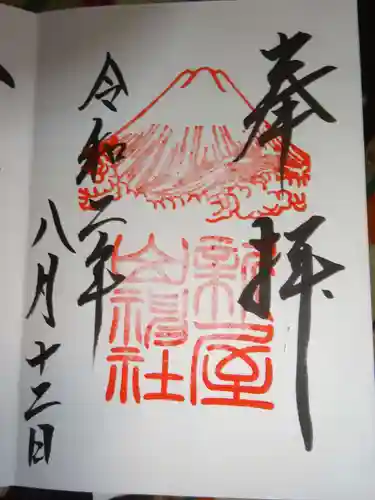 奉拝
新屋
山神
社
令和二年
八月十二日